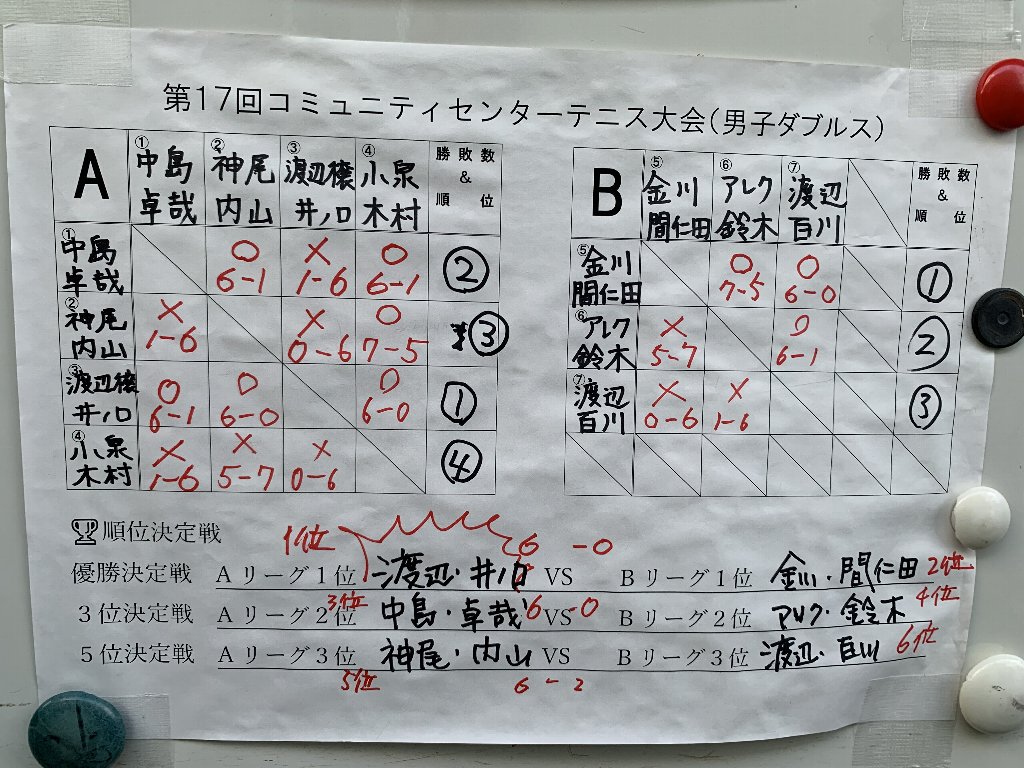 第17回コミュニティセンターテニス大会(男子ダブルス)
A ①中島 卓哉 ②神尾 内山 ③渡辺穣 井ノ口 ④小泉 木村 勝敗数 & 順位
①中島 卓哉 ○ 6-1 × 1-6 ○ 6-1 ②
②神尾 内山 × 1-6 × 0-6 ○ 7-5 ③
③渡辺穣 井ノ口 ○ 6-1 ○ 6-0 ○ 6-0 ①
④小泉 木村 × 1-6 × 5-7 × 0-6 ④
B ⑤金川 間仁田 ⑥アレク 鈴木 ⑦渡辺 百川 勝敗数 & 順位
⑤金川 間仁田 ○ 7-5 ○ 6-0 ①
⑥アレク 鈴木 × 5-7 ○ 6-1 ②
⑦渡辺 百川 × 0-6 × 1-6 ③
順位決定戦
1位 6-0
優勝決定戦 Aリーグ1位 渡辺・井ノ口 VS Bリーグ1位 金川・間仁田 2位
3位 6-0 4位
3位決定戦 Aリーグ2位 中島・卓哉 VS Bリーグ2位 アレク・鈴木
5位決定戦 Aリーグ3位 神尾・内山 VS Bリーグ3位 渡辺・百川 6位
5位 6-2